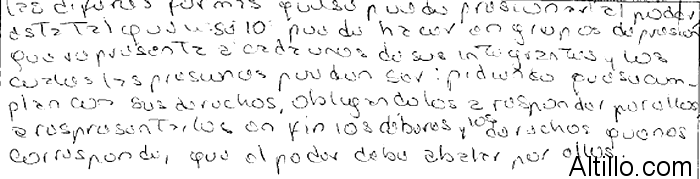 las difores formas quese puede presionar al poder
estatal que uiselo puede hacer en grupos de presion
que represente a cada uno de sus integrantes y los
cuales las presunes pueden ser: pidiendo que se cum-
plan con sus derechos, obligandolos a responder por ellos
a respresentarlos en fin los deberes y los derechos que nos
corresponde, que el poder debe abalar por ellos.
Altillo.com